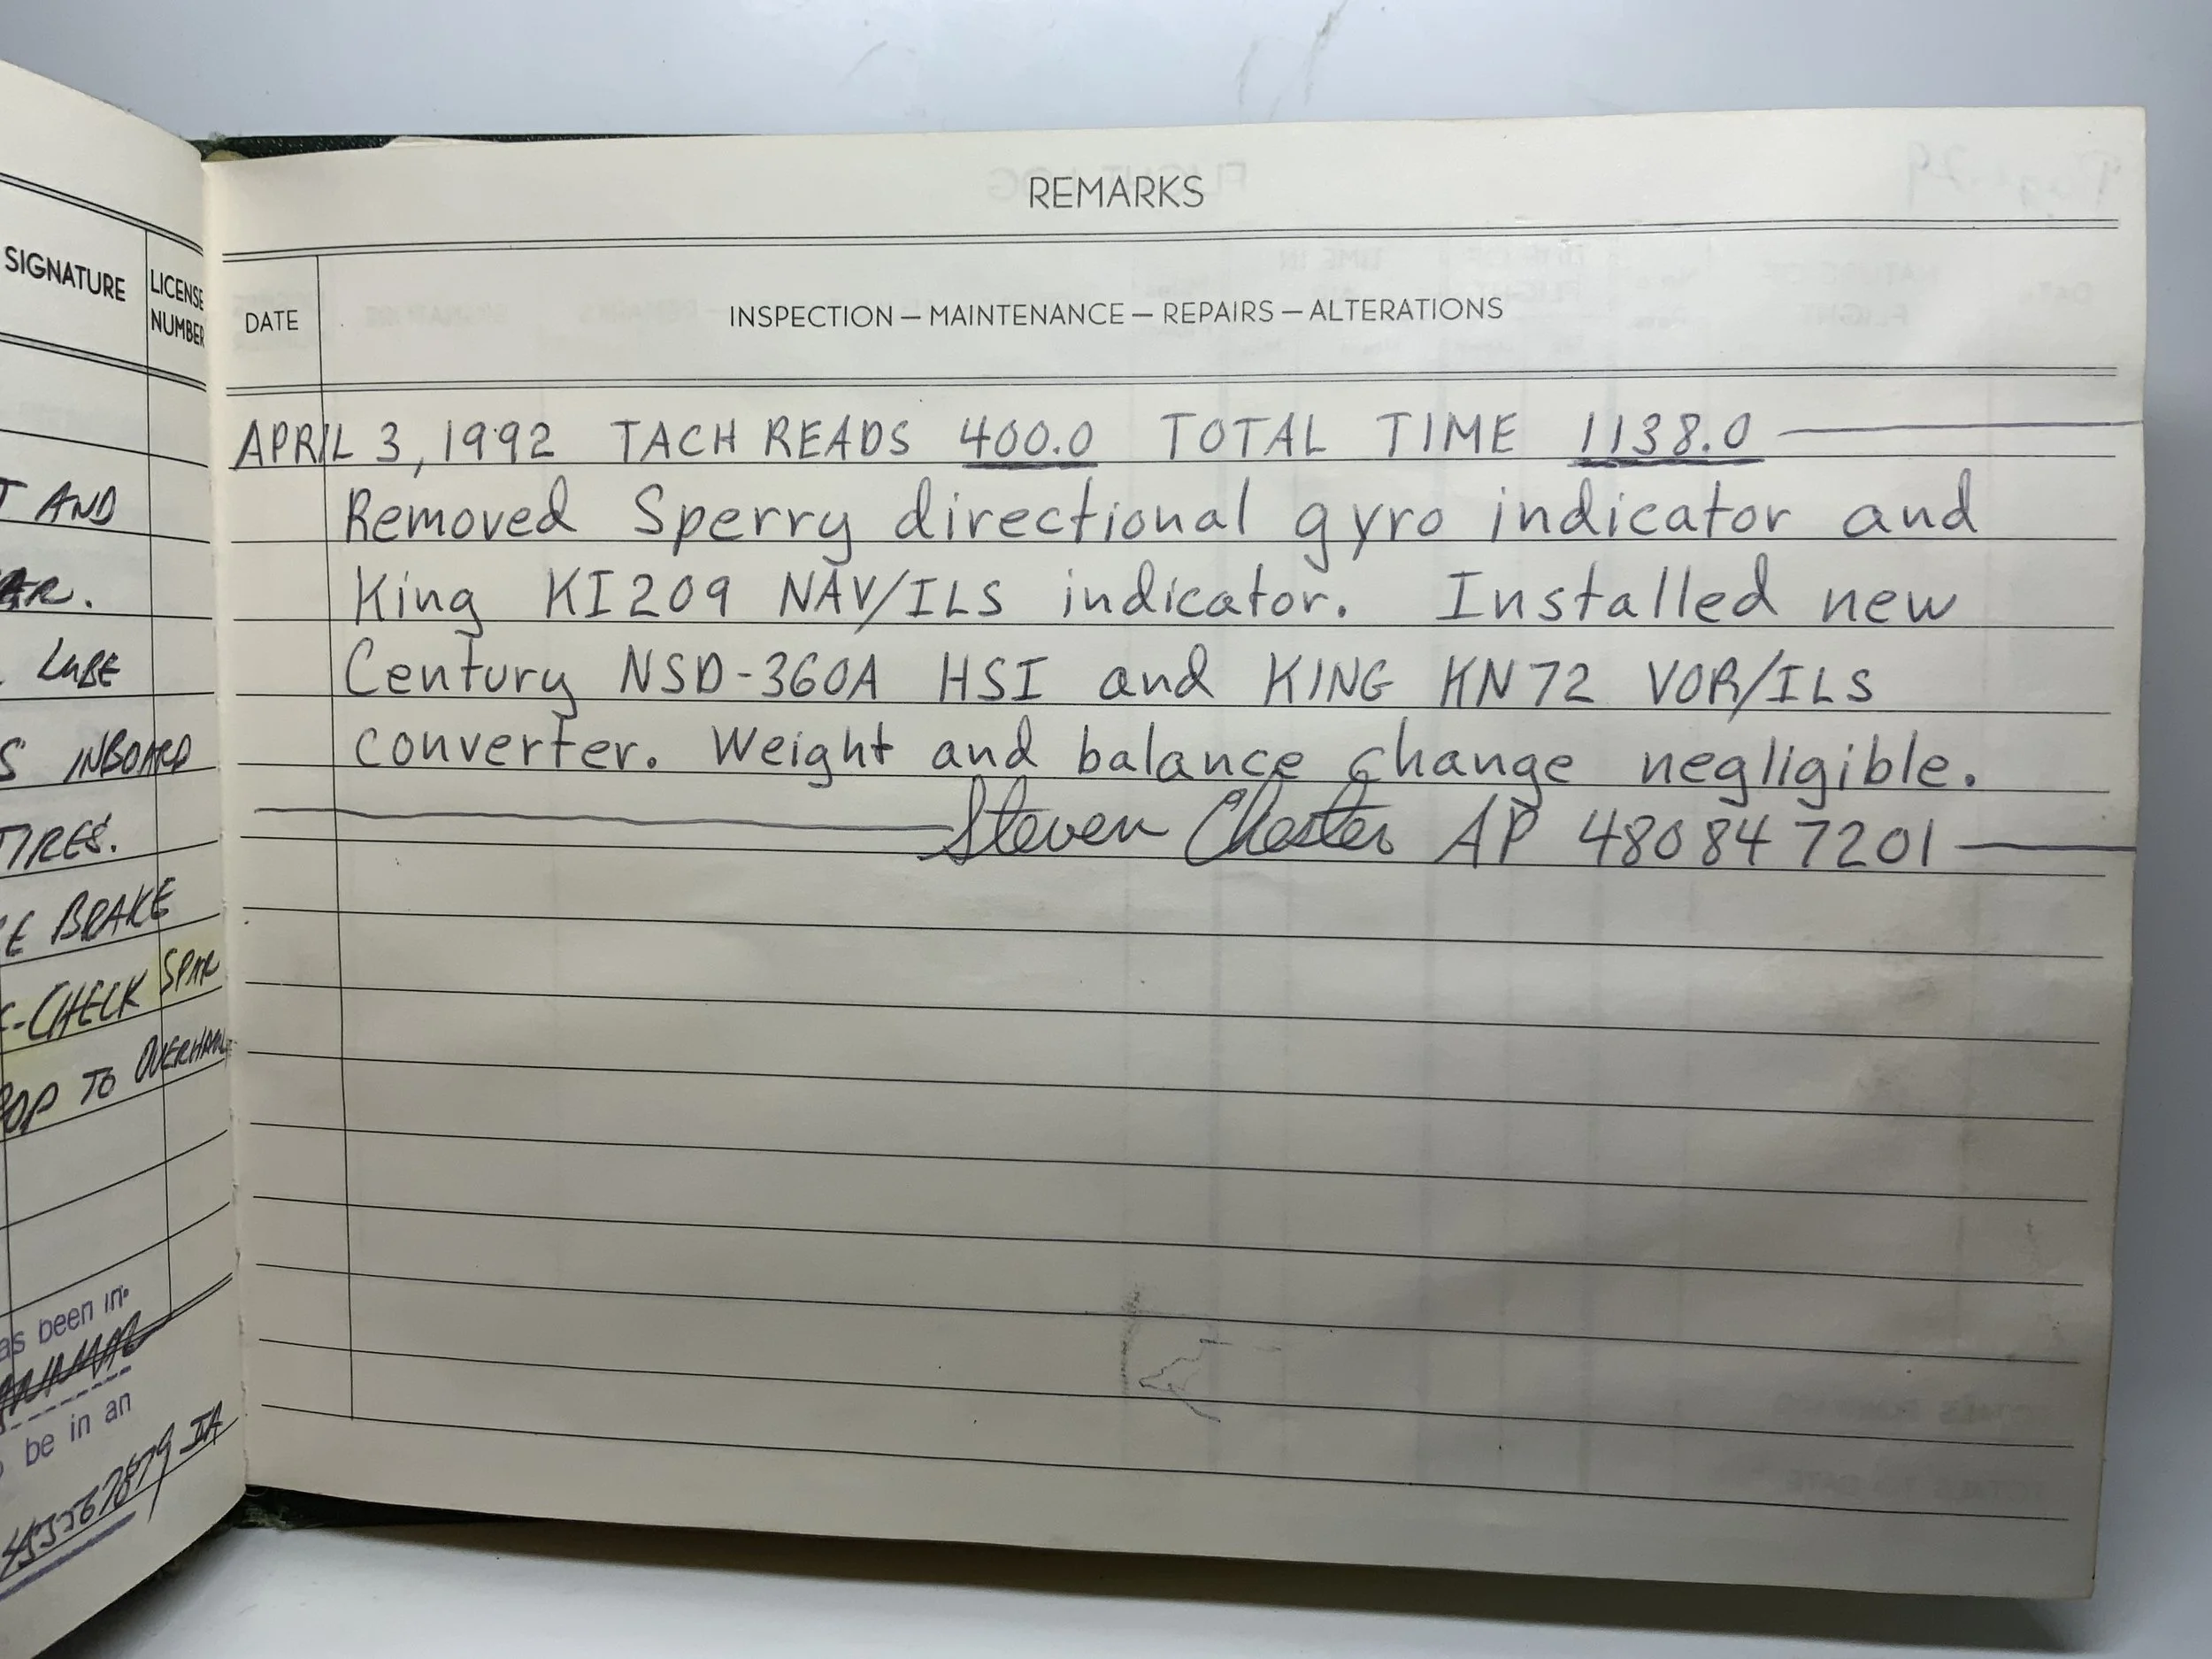 SIGNATURE
LICENSE
NUMBER
AND
LUBE
INBOARD
TIRES.
BRAKE
-CHECK SPAR
TO OVERHAUL
as been in-
be in an
IA
REMARKS
DATE
INSPECTION — MAINTENANCE — REPAIRS — ALTERATIONS
APRIL 3, 1992 TACH READS 400.0 TOTAL TIME 1138.0
Removed Sperry directional gyro indicator and
King KI209 NAV/ILS indicator. Installed new
Century NSD-360A HSI and KING KN72 VOR/ILS
converter. Weight and balance change negligible.
Steven Chester AP 480847201